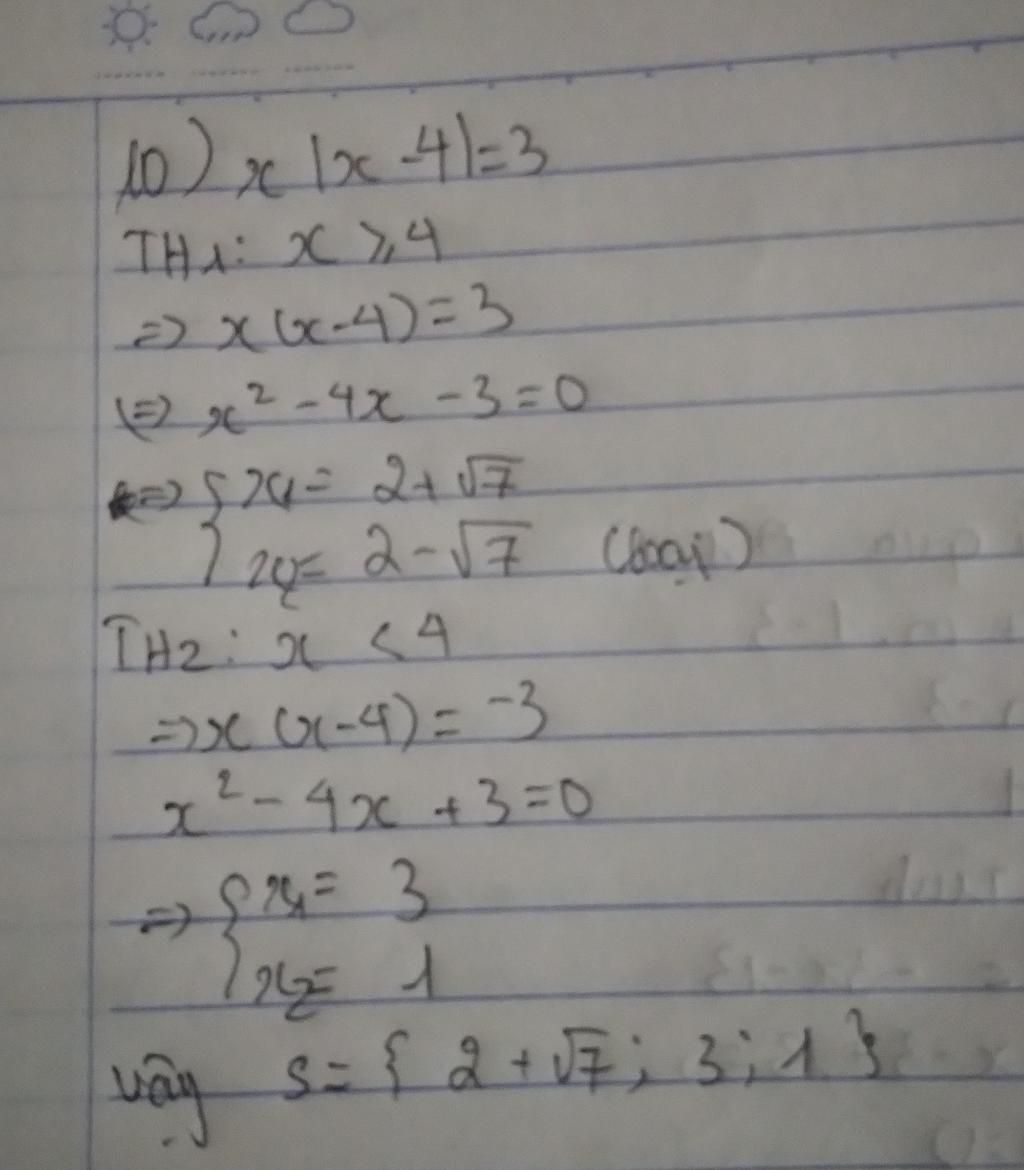 10) x |x - 4| = 3
TH1: x ⩾ 4
=> x(x-4) = 3
<=> x² - 4x - 3 = 0
<=> { x₁ = 2 + √7
x₂ = 2 - √7 (loại)
TH2: x < 4
=> x (x-4) = -3
x² - 4x + 3 = 0
=> { x₁ = 3
x₂ = 1
vậy S = { 2 + √7; 3; 1 }